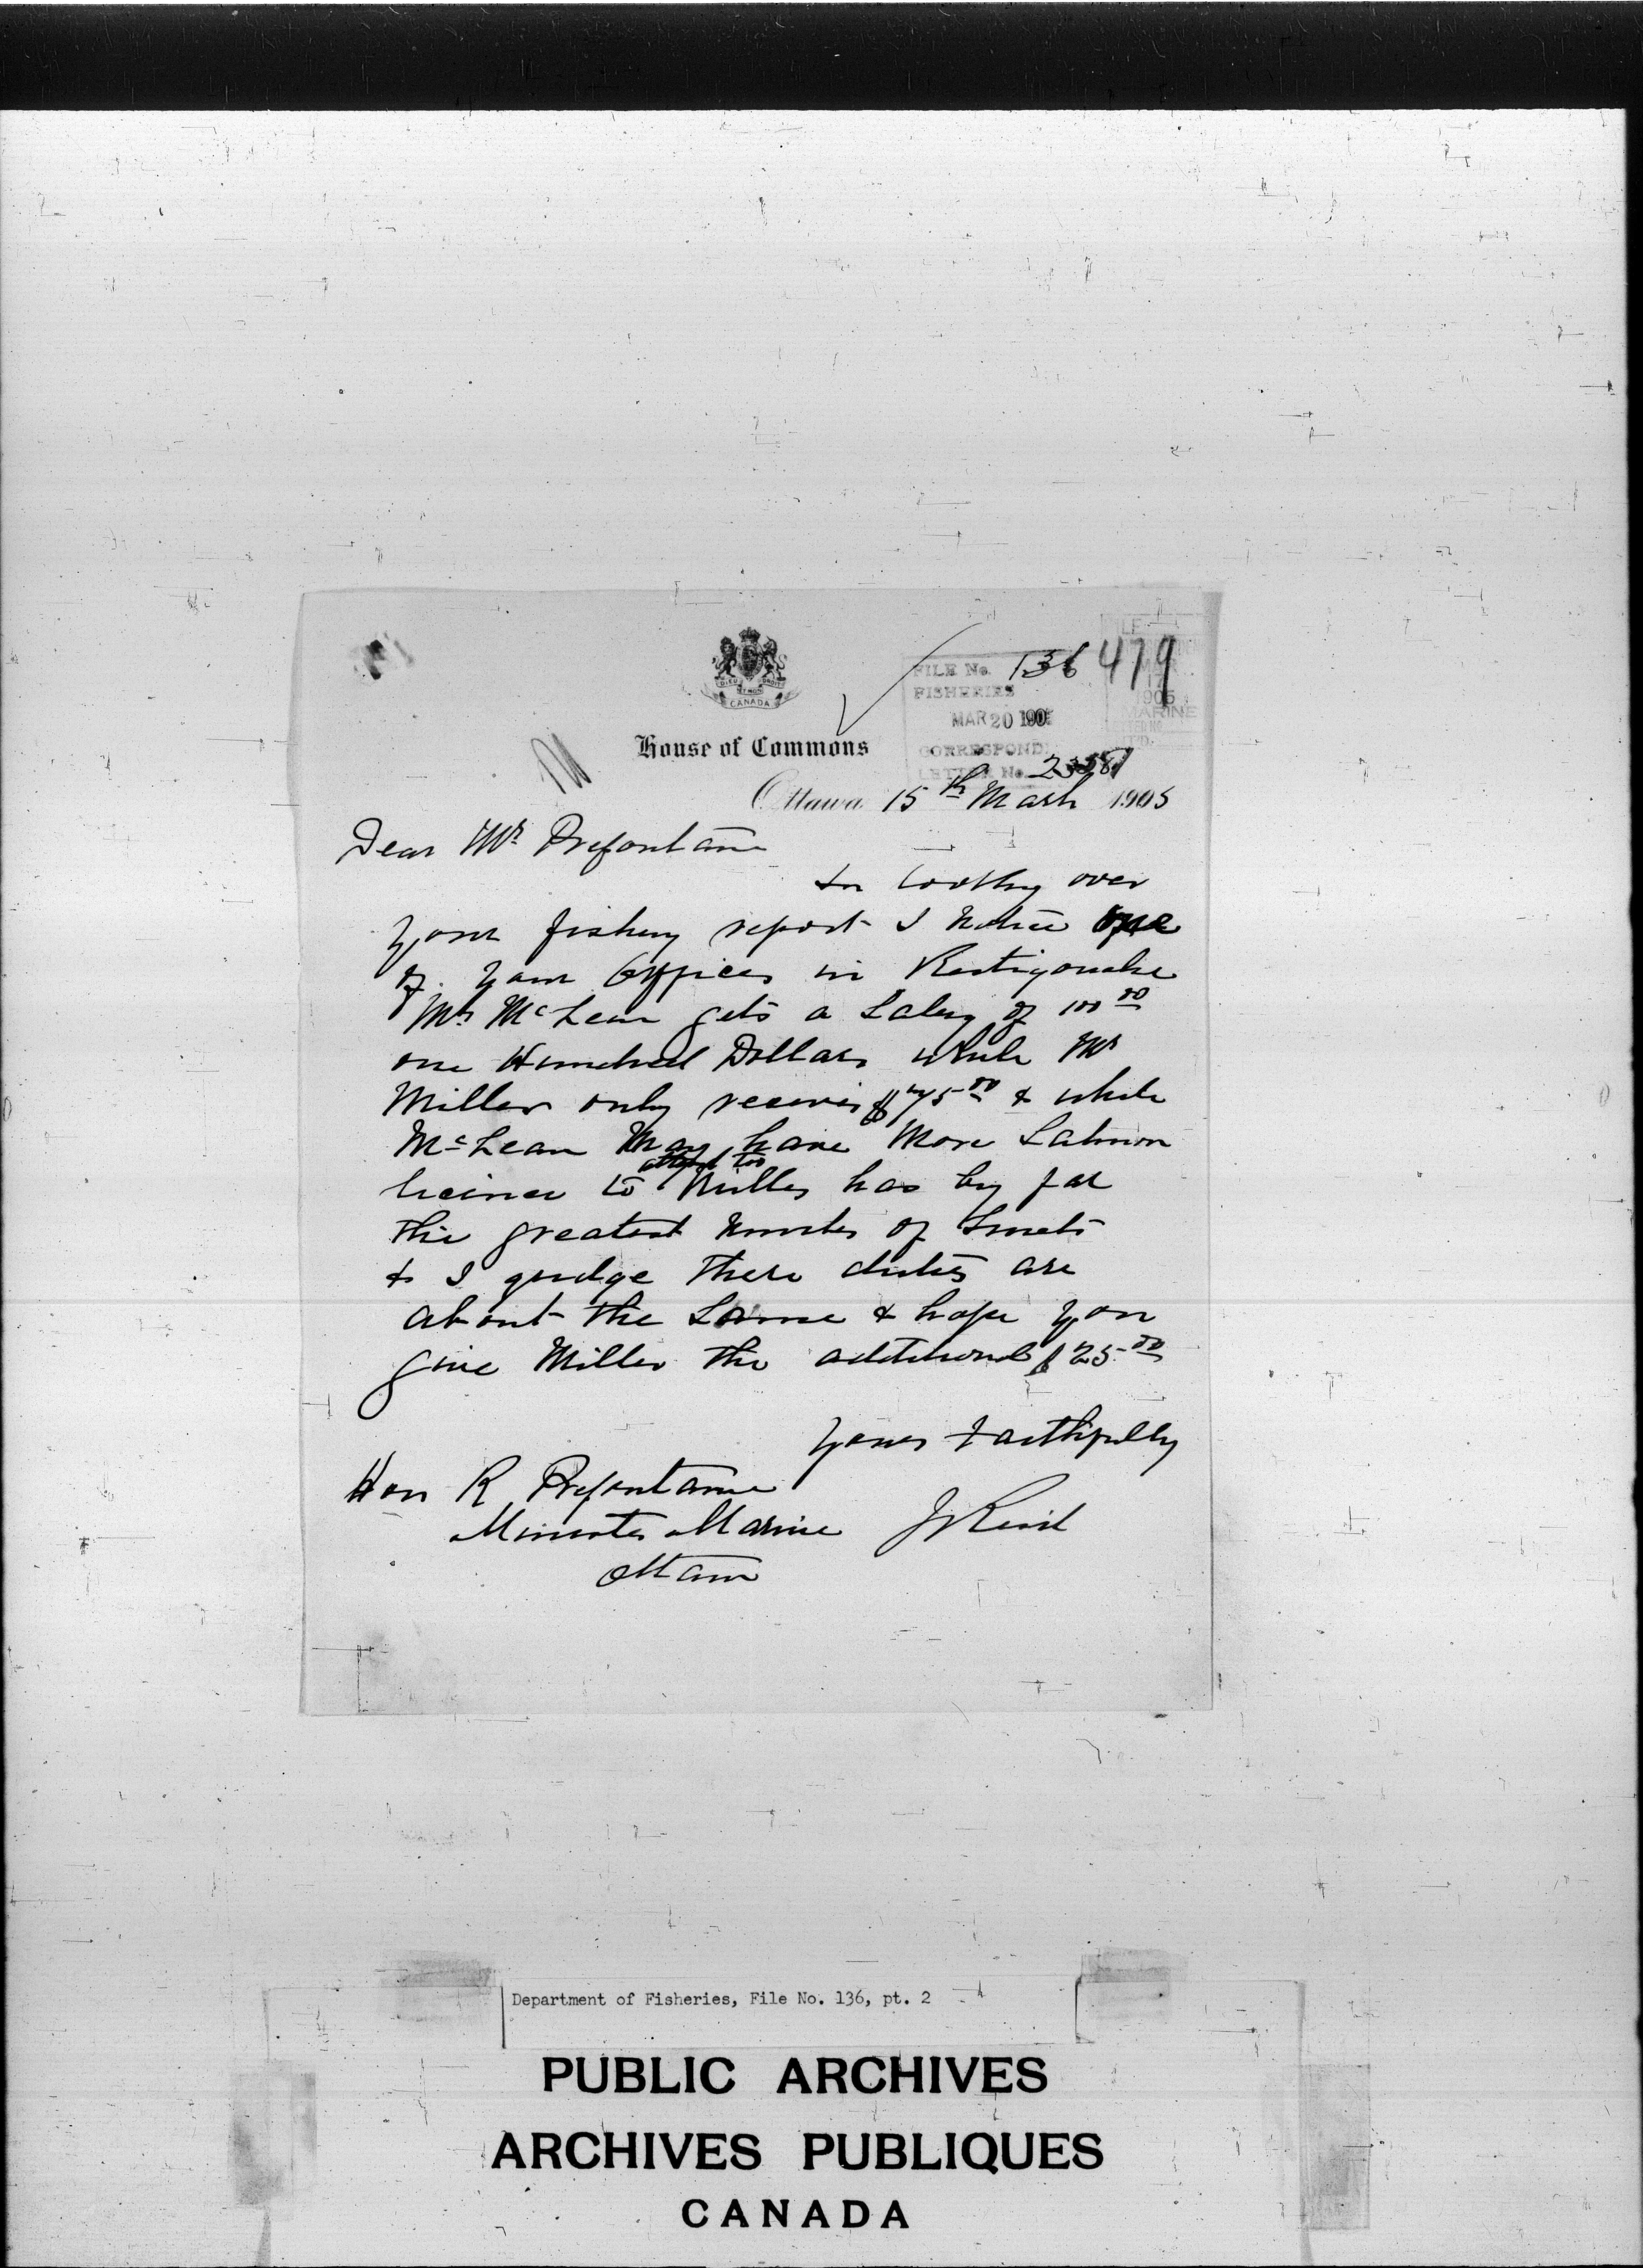 DIEU ET MON DROIT
CANADA
FILE No. 136 479
FISHERIES
MAR 20 190
CORRESPOND.
LETTER No.
1905
MARINE
House of Commons
Ottawa 15th March 1905
Dear Mr Prefontaine
In looking over
your fishery report I notice one
of your officers in Restigouche
Mr McLean gets a Salary of 100 00
one Hundred Dollars while Mr
Miller only receives $75 00 & while
McLean May have More Salmon
attend too
licences to Miller has by far
the greatest Number of Smelt
& I gudge there duties are
about the Same & hope you
give Miller the additional $25 00
Yours Faithfully
Hon R Prefontaine
J Reid
Minister Marine
Ottawa
Department of Fisheries, File No. 136, pt. 2
PUBLIC ARCHIVES
ARCHIVES PUBLIQUES
CANADA